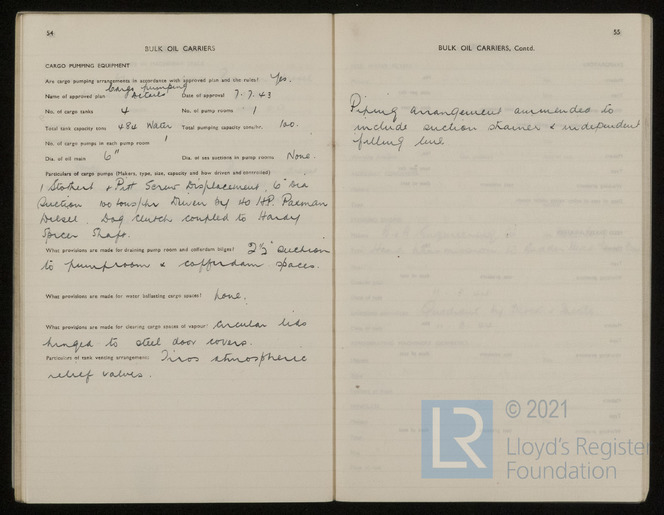 54
BULK OIL CARRIERS
CARGO PUMPING EQUIPMENT
Are cargo pumping arrangements in accordance with approved plan and the rules? Yes.
Cargo pumping
Name of approved plan Details Date of approval 7.7.43
No. of cargo tanks 4 No. of pump rooms 1
Total tank capacity tons 484 Water Total pumping capacity tons/hr. 100.
No. of cargo pumps in each pump room 1
Dia. of oil main 6" Dia. of sea suctions in pump rooms None.
Particulars of cargo pumps (Makers, type, size, capacity and how driven and controlled)
1 Stothert & Pitt Screw Displacement. 6" dia
Suction 100 tons/hr Driven by 40 HP. Paxman
Diesel. Dog clutch coupled to Hardy
Spicer Shaft.
What provisions are made for draining pump room and cofferdam bilges? 2½" suction
to pumproom & cofferdam spaces.
What provisions are made for water ballasting cargo spaces? None.
What provisions are made for clearing cargo spaces of vapour? Circular lids
hinged to steel door covers.
Particulars of tank venting arrangements Tiros atmospheric
relief valves.
55
BULK OIL CARRIERS, Contd.
Piping arrangement ammended to
include suction strainer & independent
filling line.
LR
© 2021
Lloyd's Register
Foundation